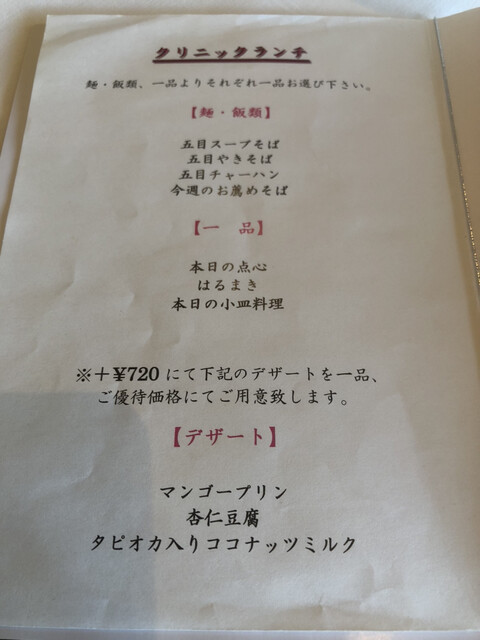 クリニックランチ
麺・飯類、一品よりそれぞれ一品お選び下さい。
【麺・飯類】
五目スープそば
五目やきそば
五目チャーハン
今週のお薦めそば
【一　品】
本日の点心
はるまき
本日の小皿料理
※＋¥720 にて下記のデザートを一品、
ご優待価格にてご用意致します。
【デザート】
マンゴープリン
杏仁豆腐
タピオカ入りココナッツミルク